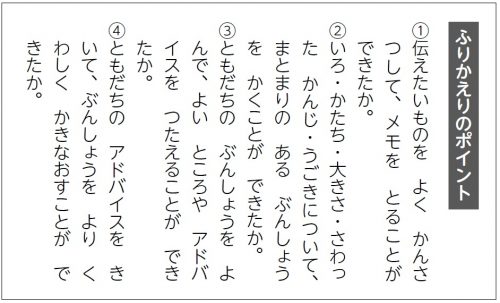 ふりかえりのポイント
①伝えたいものを　よく　かんさ
つして、メモを　とることが
できたか。
②いろ・かたち・大きさ・さわっ
た　かんじ・うごきについて、
まとまりの　ある　ぶんしょう
を　かくことが　できたか。
③ともだちの　ぶんしょうを　よ
んで、よい　ところや　アドバ
イスを　つたえることが　でき
たか。
④ともだちの　アドバイスを　き
いて、ぶんしょうを　より　く
わしく　かきなおすことが　で
きたか。